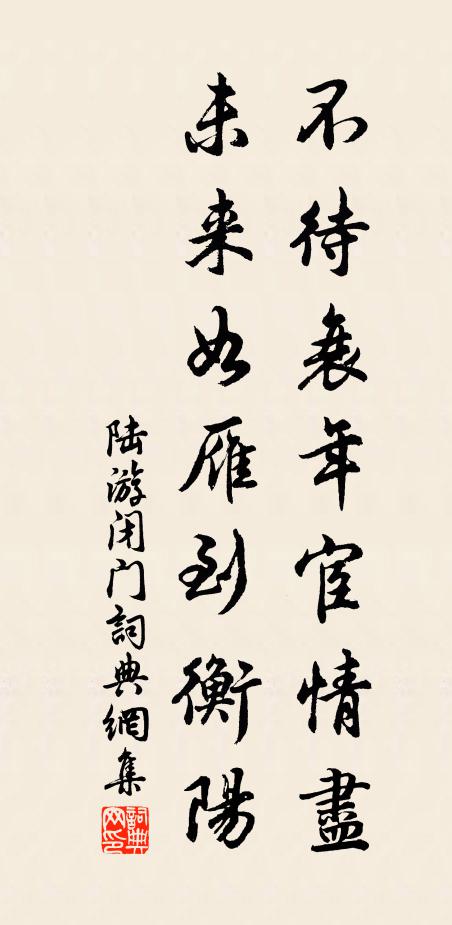 不待衰年宦情盡
未来如雁到衡陽
陆游闭门詞典網集
詞典網印